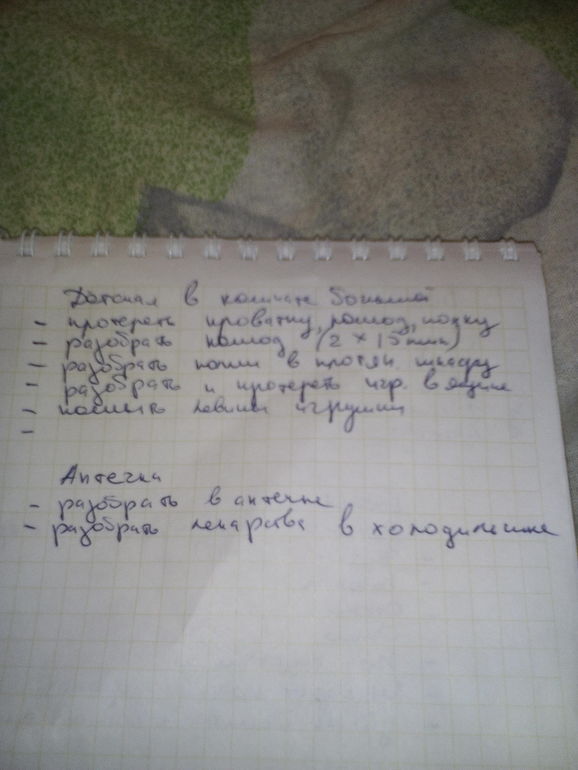 Детская в комнате большой
- протереть кроватку, комод, полку
- разобрать комод (2 × 15 мин)
- разобрать полки в шкафу
- разобрать и протереть игр. в ящике
- помыть Левины игрушки
-
Аптечка
- разобрать в аптечке
- разобрать лекарства в холодильнике